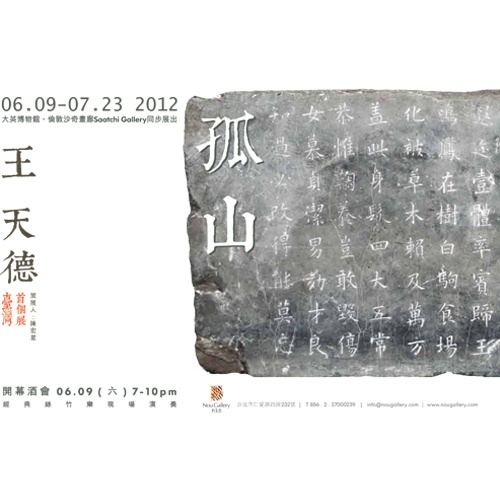 06.09-07.23 2012
大英博物館、倫敦沙奇畫廊Saatchi Gallery同步展出
王天德
臺灣
首個展
策展人：陳宏星
開幕酒會 06.09 ( 六 ) 7-10pm
經典絲竹樂現場演奏
孤山
遐迩壹體率賓歸王
鳴鳳在樹白駒食場
化被草木賴及萬方
蓋此身髮四大五常
恭惟鞠養豈敢毀傷
女慕貞潔男效才良
知過必改得能莫忘
Nou Gallery
台北市仁愛路四段232號 | T 886 . 2 . 27000239 | info@nougallery.com | www.nougallery.com